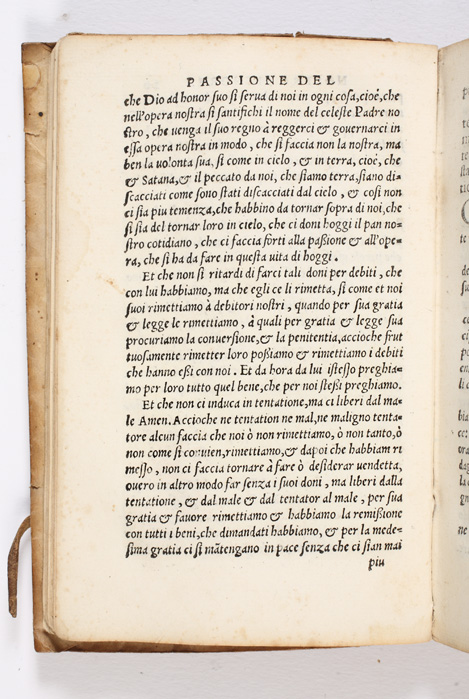 PASSIONE DEL
che Dio ad honor suo si serva di noi in ogni cosa, cioé, che
nell'opera nostra si santifichi il nome del celeste Padre no
stro, che uenga il suo regno à reggerci & governarci in
essa opera nostra in modo, che si faccia non la nostra, ma
ben la uolonta sua, si come in cielo, & in terra, cioè, che
& Satana, & il peccato da noi, che siamo terra, siano di=
scacciati come sono stati discacciati dal cielo, & cosi non
ci sia piu temenza, che habbino da tornar sopra di noi, che
si sia del tornar loro in cielo, che ci doni hoggi il pan no=
stro cotidiano, che ci faccia forti alla passione & all'ope=
ra, che si ha da fare in questa uita di hoggi.
Et che non si ritardi di farci tali doni per debiti, che
con lui habbiamo, ma che egli ce li rimetta, si come et noi
suoi rimettiamo à debitori nostri, quando per sua gratia
& legge le rimettiamo, à quali per gratia & legge sua
procuriamo la conuersione, & la penitentia, accioche frut
tuosamente rimetter loro possiamo & rimettiamo i debiti
che hanno essi con noi. Et da hora da lui istesso preghia=
mo per loro tutto quel bene, che per noi stessi preghiamo.
Et che non ci induca in tentatione, ma ci liberi dal ma=
le Amen. Accioche ne tentation ne mal, ne maligno tenta=
tore alcun faccia che noi ò non rimettiamo, ò non tanto, ò
non come si conuien, rimettiamo, & dapoi che habbiam ri
messo, non ci faccia tornare à fare ò desiderar uendetta,
ouero in altro modo far senza i suoi doni, ma liberi dalla
tentatione, & dal male & dal tentator al male, per sua
gratia & fauore rimettiamo & habbiamo la remissione
con tutti i beni, che dimandati habbiamo, & per la mede=
sima gratia ci si mãtengano in pace senza che ci sian mai
piu